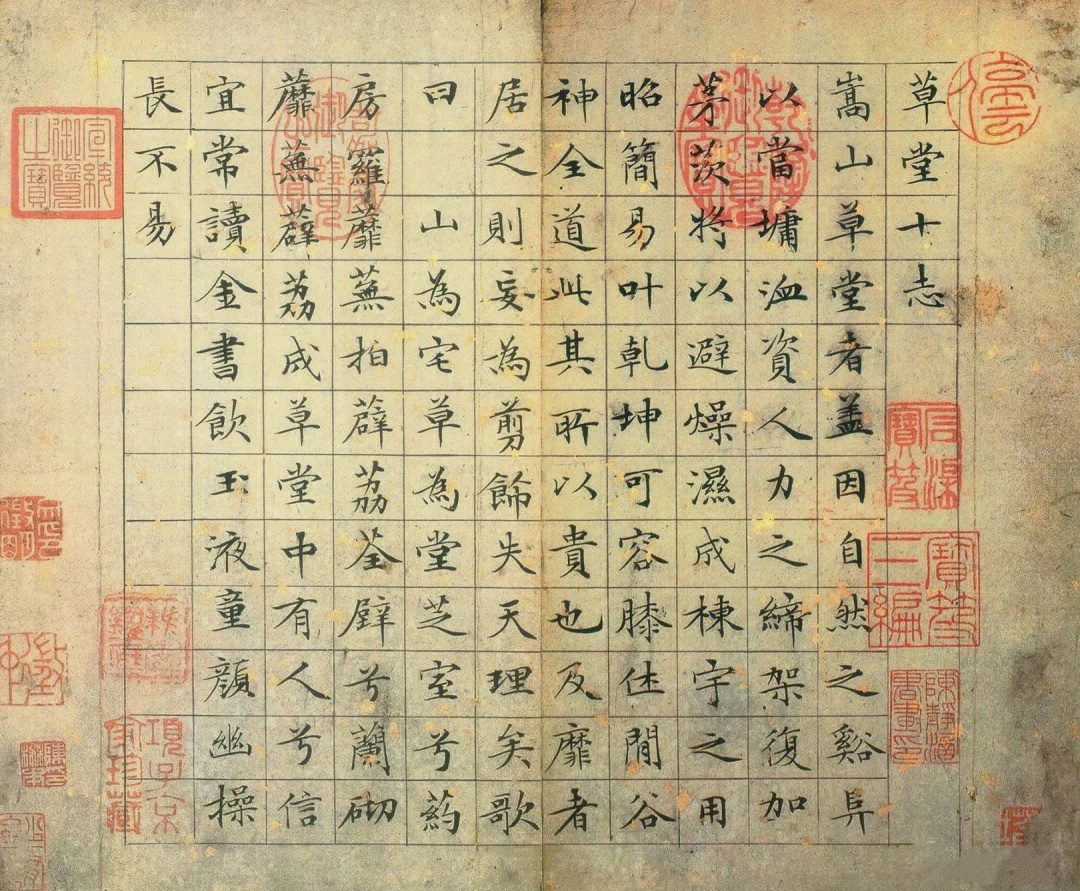 停雲
草堂十志
嵩山草堂者盖因自然之谿阜
以當墉洫資人力之締架復加
茅茨将以避燥濕成棟宇之用
昭簡易叶乾坤可容膝休閒谷
神全道此其所以貴也及靡者
居之則妄為剪餙失天理矣歌
曰山為宅草為堂芝室兮葯
房羅蘼蕪拍薜荔荃壁兮蘭砌
蘼蕪薜荔成草堂中有人兮信
宜常讀金書飲玉液童顏幽操
長不易
石渠寶笈
寶笈三編
宣統御覽之寶
項子京家珍藏